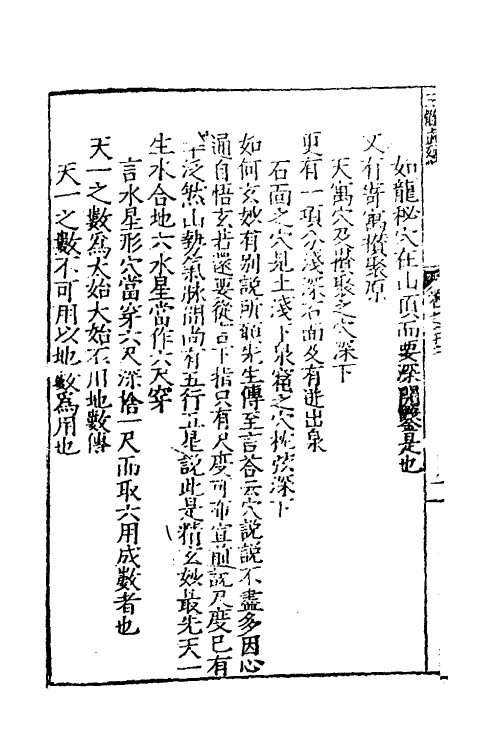 如龍秘穴在山頂而要深開鑿金是也
又有寄寓攢聚原
天寓穴及攢聚之穴深下
更有一項分淺深石面及有迸出泉
石面之穴見土淺下泉窟之穴
深下
如何玄妙有別說所願先生傳至言答云穴說說不盡多因心
通自悟玄
還要從言下指只有尺度可布宣前說尺度已有
泛然山勢氣脉間尚有五行
是說此是精玄妙最先天一
生水合地六水星當作六尺穿
言水星形穴當穿六尺深恰一尺而取六用成數者也
天一之數為太始太始不用地數傳
天一之數不可用以地數為用也